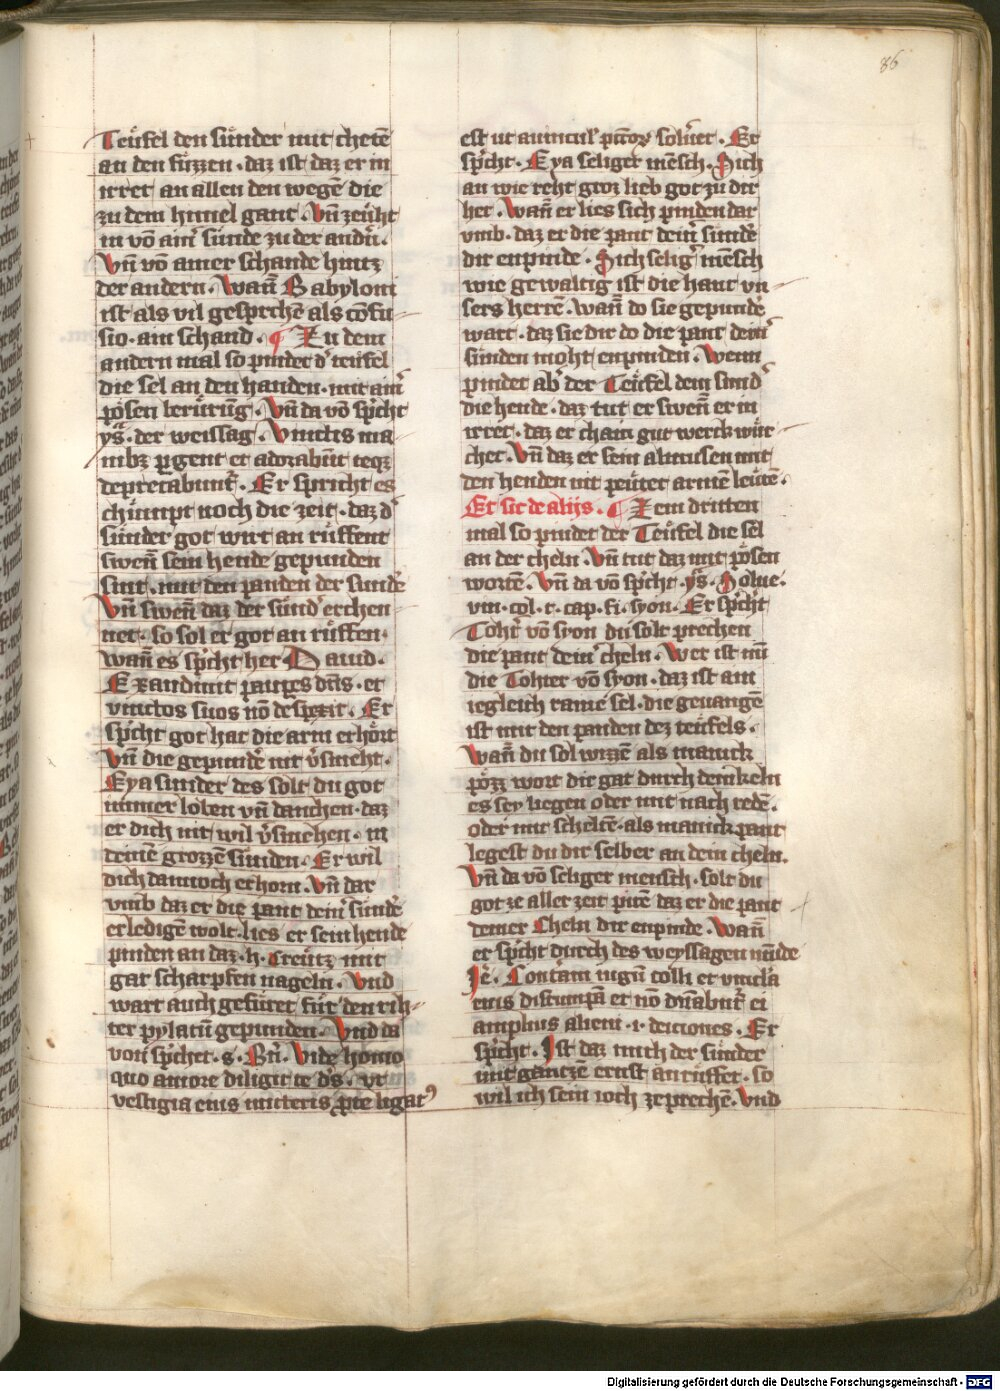 86
Teüfel den sünder mit chetē
an den füzzen . daz ist daz er in
irret an allen den wegē die
zu dem himel gant . Vn̄ zeüht
in vō ainʼ sünde zu der andʼn .
Vn̄ vō ainer schande hintz
der andern . Wan̄ Babyloni
ist als vil gesprechē als cōfu
sio . ain schand . ¶ Zu dem
andern mal so pindet dʼ teüfel
die sel an den handen . mit ainʼ
pösen berürūg . Vn̄ da vō spʼcht
ys̄ . der weissag . Vinctis ma
nibꝫ pergent et adorabūt teqꝫ
deprecabuntʼ . Er spricht es
chümpt noch die zeit . daz dʼ
sünder got wirt an rüffent
swen̄ sein hende gepunden
sint . mit den panden der sündē
Vn̄ swen̄ daz der sündʼ erchen
net . so sol er got an rüffen .
wan̄ es spʼcht her Dauid .
Exaudiuit paupes dn̄s . et
vinctos suos nō despexit . Er
spʼcht got hat die arm erhört
Vn̄ die gepundē nit vʼsmeht .
Eya sünder des solt du got
immer loben vn̄ danchen . daz
er dich nit wil vʼsmehen . in
deinē grozzē sünden . Er wil
dich dannoch erhorn . Vn̄ dar
vmb daz er die pant deinʼ sündē
erledigē wolt . lies er sein hende
pinden an daz . h . Creütz mit
gar scharpfen nageln . Vnd
wart auch gefüret für den rih
ter pylatū gepunden . Vnd da
von spʼchet . s . Bn̄ . Vide homo
quo amore diligit te dʼs . vt
vestigia eius miteris p̱te ligatꝰ
est ut a vinculʼ pctōꝝ soluʼet . Er
spʼcht . Eya seliger mēsch . Sich
an wie reht groz lieb got zu dir
het . Wan̄ er lies sich pinden dar
vmb . daz er die pant deinʼ sündē
dir enpinde . Sich seligʼ mēsch
wie gewaltig ist die hant vn
sers herrē . wan̄ do sie gepundē
wart . daz sie dir do die pant deinʼ
sünden moht enpinden . Wenn
pindet abʼ der Teüfel dem sündʼ
die hende . daz tut er swen̄ er in
irret . daz er chain gut werck wür
chet . Vn̄ daz er sein almusen mit
den henden nit peütet armē leütē .
Et sic de alijs . ¶ Zem dritten
mal so pindet der Teüfel die sel
an der cheln . Vn̄ tut daz mit pösen
wortē . Vn̄ da vō spʼcht . ys̄ . Solue .
vin . col . t . cap . fi . syon . Er spʼcht
Tohtʼ vō syon du solt prechen
die pant deinʼ cheln . Wer ist nū
die Tohter vō syon . daz ist ain
iegleich raine sel . die geuangē
ist mit den panden dez teüfels .
Wan̄ du sol wizzē als manick
pözz wort dir gat durch dein keln
es sey liegen oder mit nach redē .
oder mit scheltē . als manick pant
legest du dir selber an dein cheln .
Vn̄ da vō seliger mensch . solt du
got ze aller zeit pitē daz er die pant
deiner Cheln dir enpinde . Wan̄
er spʼcht durch des weyssagen mūde
Je̅ . Conʼtam iugū colli et vincla
eius disrumpā et nō dn̄abūtʼ ei
amplius alieni . i . demones . Er
spʼcht . Ist daz mich der sünder
mit gantzē ernst anrüffet . so
wil ich sein ioch zeprechē . Vnd
Digitalisierung gefördert durch die Deutsche Forschungsgemeinschaft - DFG